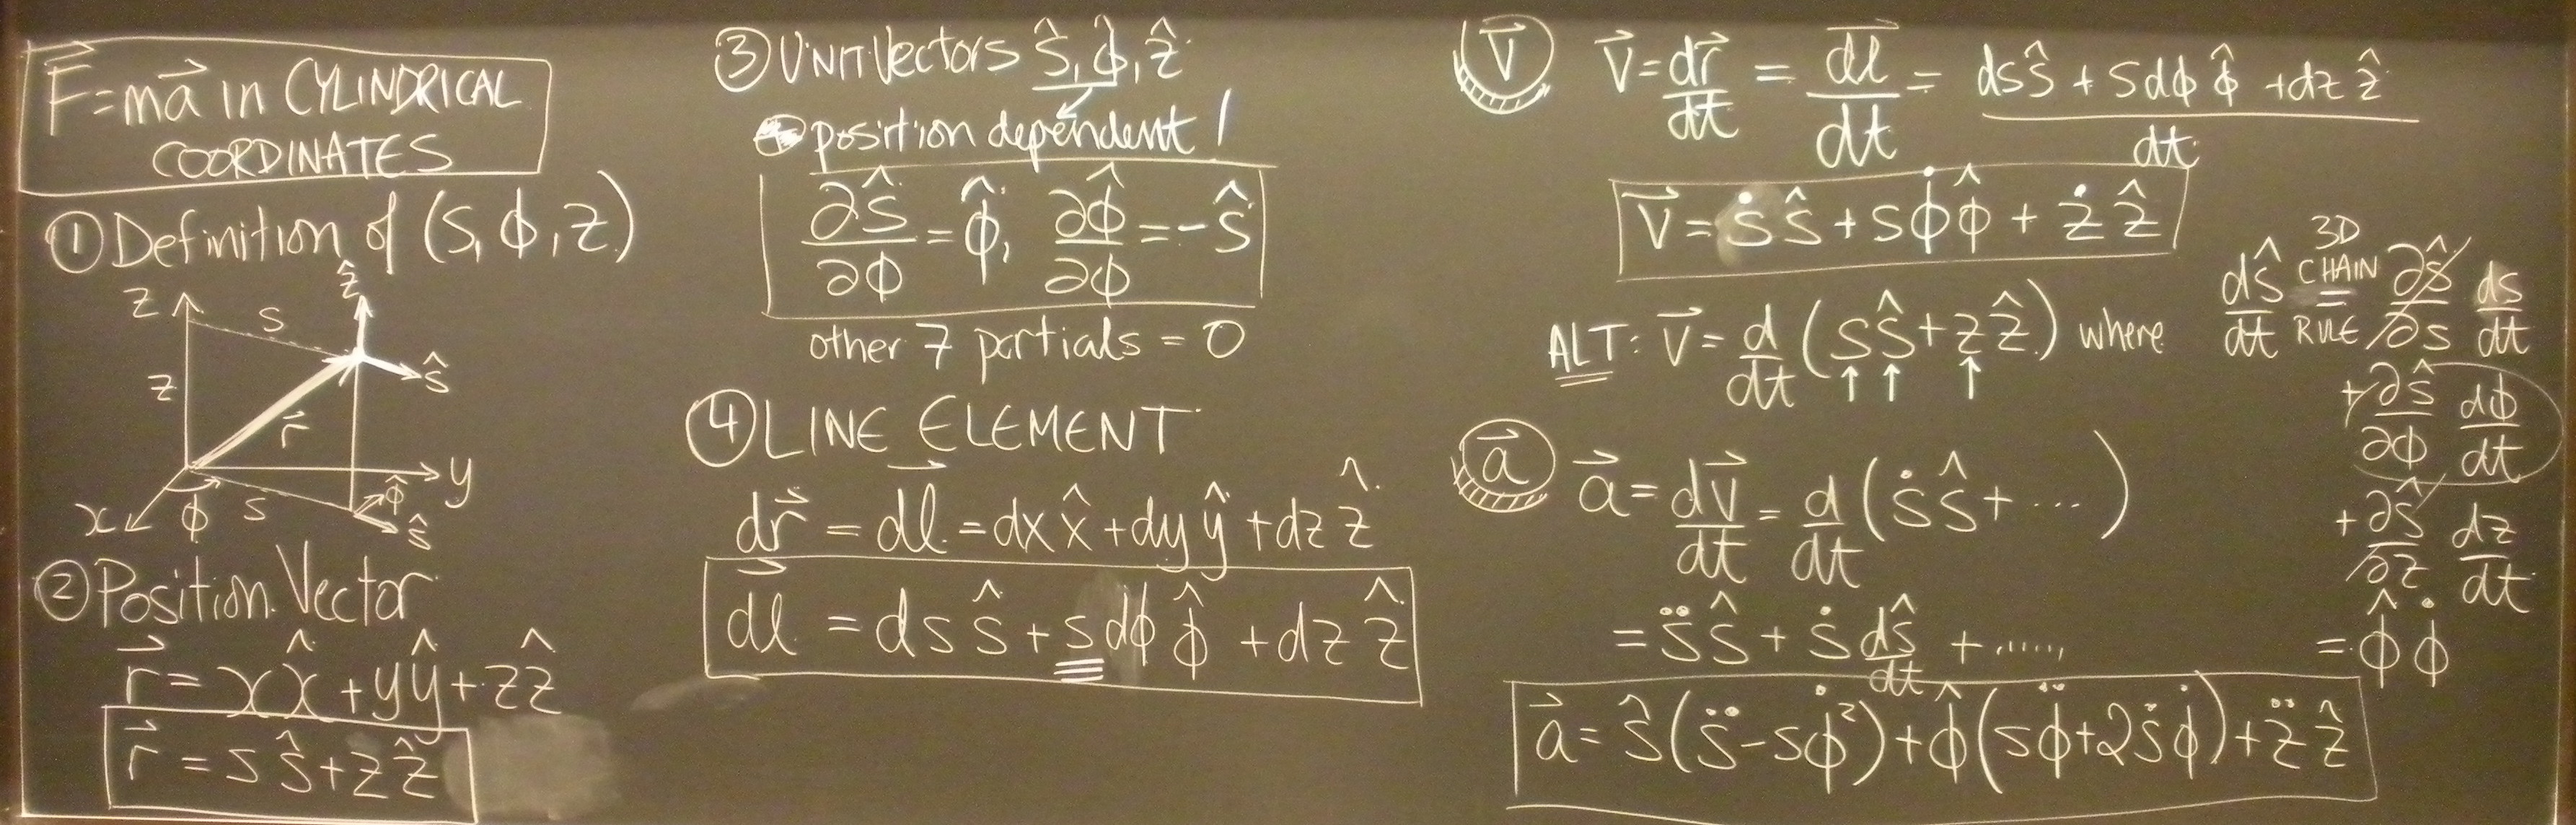 F⃗ = ma⃗ in CYLINDRICAL
COORDINATES
① Definition of (s, ϕ, z)
z
s
ẑ
z
ŝ
r⃗
y
x
ϕ
s
ϕ̂
ŝ
② Position Vector
r⃗ = x x̂ + y ŷ + z ẑ
r⃗ = s ŝ + z ẑ
③ UNIT Vectors ŝ, ϕ̂, ẑ
position dependent!
∂ŝ/∂ϕ = ϕ̂, ∂ϕ̂/∂ϕ = -ŝ
other 7 partials = 0
④ LINE ELEMENT
dr⃗ = dl⃗ = dx x̂ + dy ŷ + dz ẑ
dl⃗ = ds ŝ + s dϕ ϕ̂ + dz ẑ
v⃗
v⃗ = dr⃗/dt = dl⃗/dt = (ds ŝ + s dϕ ϕ̂ + dz ẑ)/dt
v⃗ = ṡ ŝ + s ϕ̇ ϕ̂ + ż ẑ
ALT: v⃗ = d/dt (s ŝ + z ẑ) where
dŝ/dt = ∂ŝ/∂s ds/dt
3D
CHAIN
RULE
+ ∂ŝ/∂ϕ dϕ/dt
+ ∂ŝ/∂z dz/dt
= ϕ̂ ϕ̇
a⃗
a⃗ = dv⃗/dt = d/dt (ṡ ŝ + ...)
= s̈ ŝ + ṡ dŝ/dt + .....
a⃗ = ŝ(s̈ - sϕ̇²) + ϕ̂(sϕ̈ + 2ṡϕ̇) + z̈ ẑ